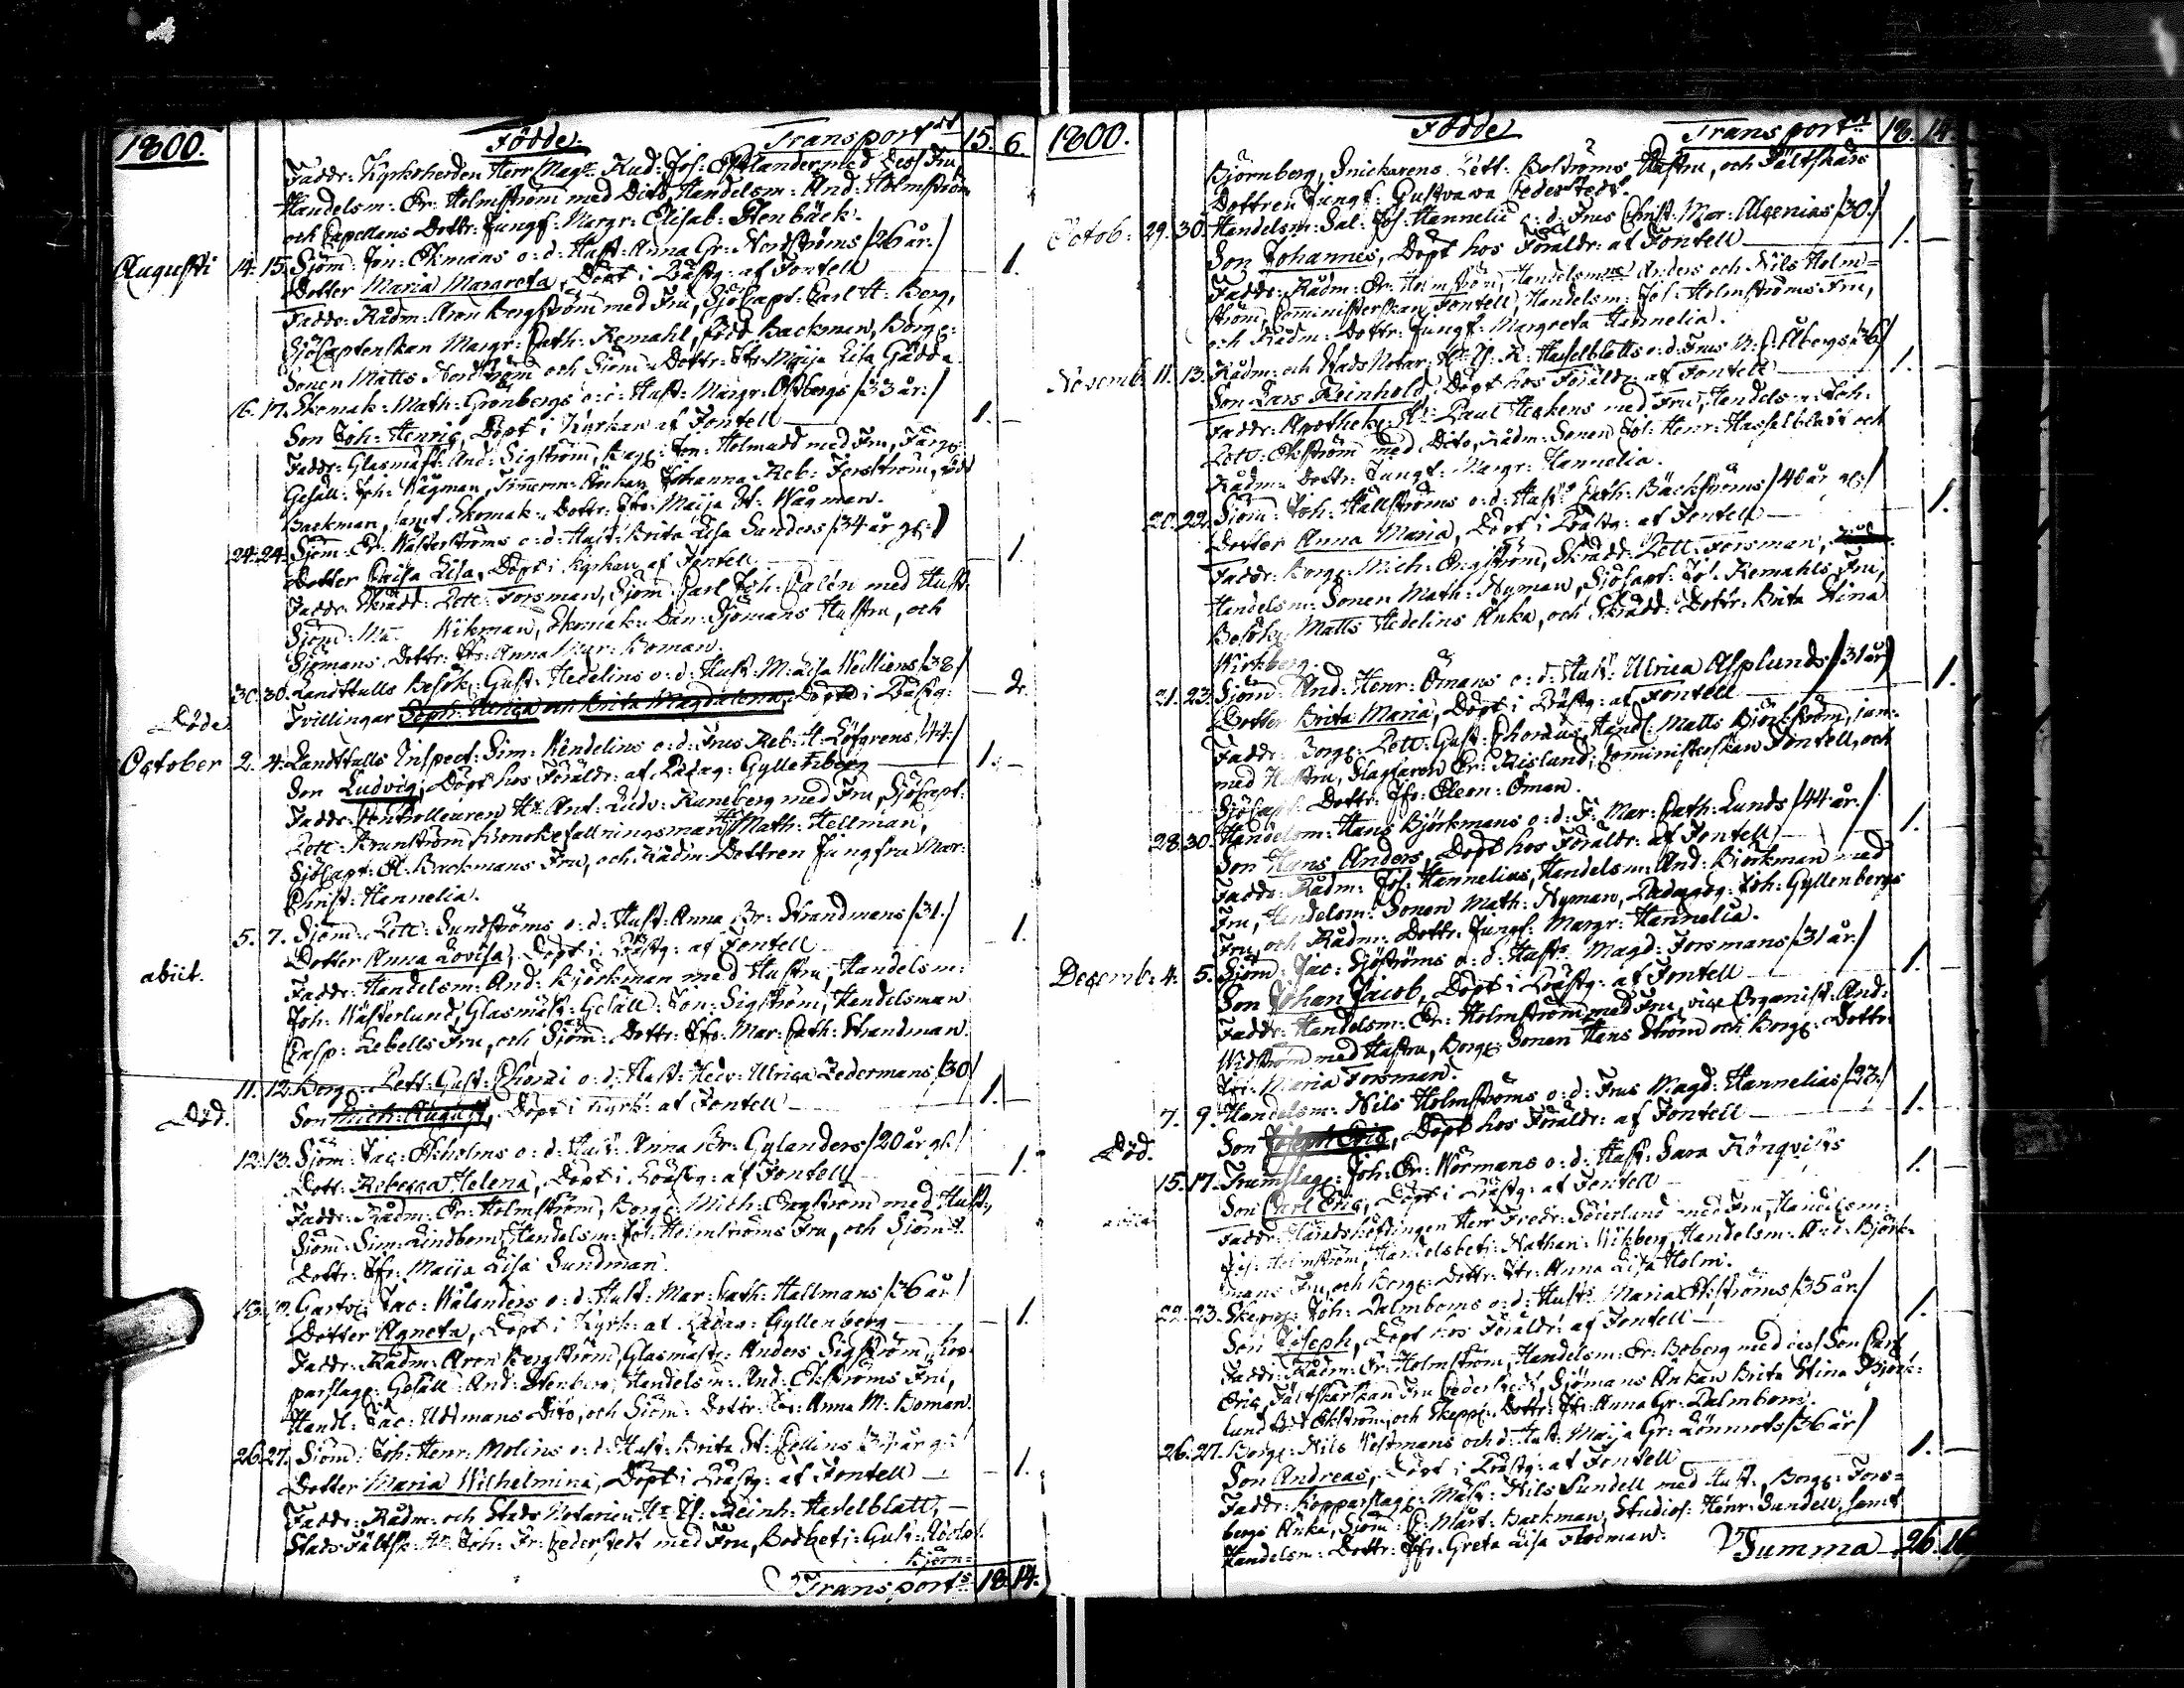 1800. Födde. Transport 15. 6
Fadd: Kyrkoherden Herr Mag: And: Joh: med Dess Fru,
Handelsm: Er: Holmström med Dito, Handelsm: And: Holmström
och Capellans Dotter: Jungf: Margr: Elisab: Stenbäck.
Augusti 14. 15. Sjöm: Jon: Ekmans o: d: Hust: Anna Gr: Nordströms /26 år:/
Dotter Maria Margreta, Döpt i Prästg: af Fontell 1.
Fadd: Rådm: Aron Bergström med Fru, SjöCapt: Carl H: Berg,
SjöCaptenskan Margr: Cath: Remahl, född Backman, Borg:
Sonen Matts Nordström och Sjöm: Dottr: Jfr: Maija Lisa Gädda.
16. 17. Skomak: Math: Grönbergs o: d: Hust: Margr: Östbergs /33 år:/
Son Joh: Henric, Döpt i Kyrkan af Fontell 1.
Fadd: Glasmäst: And: Sigström, Jon: Holmudd med Fru, Färg:
Gesäll: Joh: Wågman, Timmerm: Änkan Johanna Reb: Forsström, född
Backman, samt Skomak: Dottr: Jfr: Maija St: Wågman.
24. 24. Sjöm: Er: Wästerströms o: d: Hust: Brita Lisa Sanders /34 år gl:/
Dotter Caisa Lisa, Döpt i Kyrkan af Fontell 1.
Fadd: Skrädd: Pett: Forsman, Sjöm: Carl Joh: Calén med Hust:
Sjöm: Wikman, Skomak: Dan: Sjömans Hustru, och
Sjömans Dottr: Jfr: Anna Mar: Boman.
30. 30. Landttulls Besök: Gust: Hedelins o: d: Hust: M: Lisa Welliens /38/
Döde Tvillingar Soph: Ulrica och Brita Magdalena, Döpt i Prästg: 2.
October 2. 4. Landttulls Inspect: Sim: Wendelius o: d: Frus Reb: H: Löfgrens /44:/
Son Ludvig, Döpt hos Föräldr: af Pædag: Gyllenberg 1.
Fadd: Controlleuren Hr: Ant: Ludv: Runeberg med Fru, SjöCapt:
Pett: Brunström Kronobefallningsman Hr Math: Hellman,
SjöCapt: El: Backmans Fru, och Rådm: Dottren Jungfru Mar:
Christ: Hannelia.
5. 7. Sjöm: Pett: Sundströms o: d: Hust: Anna Br: Strandmans /31./
Dotter Anna Lovisa, Döpt i Prästg: af Fontell 1.
abiit. Fadd: Handelsm: And: Björckman med Hustru, Handelsm:
Joh: Wästerlund, Glasmäst: Gesäll: Jon: Sigström, Handelsman
Casp: Lebells Fru, och Sjöm: Dottr: Jfr: Mar: Cath: Strandman.
11. 12. Borg: Pett: Gust: Choræi o: d: Hust: Hedv: Ulrica Zedermans /30/
Död. Son Mich: August, Döpt i Kyrk: af Fontell 1.
12. 13. Sjöm: Jac: Ekholms o: d: Hust: Anna Br: Gylanders /20 år gl:/
Dott: Rebecca Helena, Döpt i Prästg: af Fontell 1.
Fadd: Rådm: Er: Holmström, Borg: Mich: Engström med Hust:,
Sjöm: Sim: Lindbom, Handelsm: Joh: Holmströms Fru, och Sjöm:
Dottr: Jfr: Maija Lisa Sundman.
Garfv: Jac: Wålanders o: d: Hust: Mar: Cath: Hallmans /36 år/
Dotter Agneta, Döpt i Kyrk: af Pædag: Gyllenberg 1.
Fadd: Rådm: Aron Bergström, Glasmäst: Anders Sigström, Kop-
parslag: Gesäll: And: Stenberg, Handelsm: And: Ekströms Fru,
Handl: Jac: Uddmans Dito, och Sjöm: Dottr: Jfr: Anna M: Boman.
26. 27. Sjöm: Joh: Henr: Molins o: d: Hust: Brita St: Collins /34 år gl:/
Dotter Maria Wilhelmina, Döpt i Prästg: af Fontell 1.
Fadd: Rådm: och Stads Notarien Hr: Is: Reinh: Hasselblatt,
Stads Fältsk: Hr: Joh: Fr: Cederstedt med Fru, Bodbetj: Gust: Adolph
Björn-
Transport: 18. 14.
1800. Födde Transport 18. 14.
Björnberg, Snickarens Pett: Boströms Hustru, och Fältskärs
Dottren Jungf: Gustvava Cederstedt.
Octob: 29. 30. Handelsm: Sal: Joh: Hannelii o: d: Frus Christ: Mar: Alcenias /30./
Son Johannes, Döpt hos Föräldr: af Fontell 1.
Fadd: Rådm: Er: Holmström, Handelsmne Anders och Nils Holm-
ström, Comministerskan Fontell, Handelsm: Joh: Holmströms Fru,
och Rådm: Dottr: Jungf: Margreta Hannelia.
Novemb: 11. 13. Rådm: och Stads Notar: Hr: Is: R: Hasselblatts o: d: Frus M: C: Åbergs /36/
Son Lars Reinhold, Döpt hos Föräldr: af Fontell 1.
Fadd: Apothek: Hr: Paul Heskens med Fru, Handelsm: Joh:
Pett: Ekström med Dito, Rådm: Sonen Joh: Henr: Hasselblatt och
Rådm: Dottr: Jungf: Margr: Hannelia.
20. 22. Sjöm: Joh: Hällströms o: d: Hust: Cath: Bäckströms /40 år gl:/
Dotter Anna Maria, Döpt i Prästg: af Fontell 1.
Fadd: Borg: Mich: Engström, Skrädd: Pett: Forsman,
Handelsm: Sonen Math: Nyman, SjöCapt: Jo: Remahls Fru,
Besök: Matts Hedelins Änka, och Skrädd: Dottr: Brita Stina
Wirkberg.
21. 23. Sjöm: And: Henr: Ömans o: d: Hust: Ulrica Asplunds /31 år/
Dotter Brita Maria, Döpt i Prästg: af Fontell 1.
Fadd: Borg: Pett: Gust: Choræus, Handl: Matts Björkström, jun:
med Hustru, Slagtaren Er: Risland, Comministerskan Fontell, och
SjöCapt: Dottr: Jfr: Eleon: Öman.
28. 30. Handelsm: Hans Björkmans o: d: F: Mar: Cath: Lunds /44 år:/
Son Hans Anders, Döpt hos Föräldr: af Fontell 1.
Fadd: Rådm: Joh: Hannelius, Handelsm: And: Björkman med
Fru, Handelsm: Sonen Math: Nyman, Pædagog: Joh: Gyllenbergs
Fru, och Rådm: Dottr: Jungf: Margr: Hannelia.
Decemb: 4. 5. Sjöm: Jac: Sjöströms o: d: Hust: Magd: Forsmans /31 år:/
Son Johan Jacob, Döpt i Prästg: af Fontell 1.
Fadd: Handelsm: Er: Holmström med Fru, vice Organist: And:
Widström med Hustru, Borg: Sonen Hans Ström och Borg: Dottr:
Jfr: Maria Forsman.
7. 9. Handelsm: Nils Holmströms o: d: Frus Magd: Hannelias /23./
Död. Son Joseph Eric, Döpt hos Föräldr: af Fontell 1.
15. 17. Trumslag: Joh: Er: Normans o: d: Hust: Sara Rönqvists
Son Carl Eric, Döpt i Prästg: af Fontell 1.
Fadd: Häradshöfdingen Herr Fredr: Söderlund med Fru, Handelsm:
Joh: Holmström, Handelsbetj: Nathan: Wikberg, Handelsm: And: Björk-
mans Fru, och Borg: Dottr: Jfr: Anna Lisa Holm.
22. 23. Skepp: Joh: Dalmboms o: d: Hust: Maria Ekströms /35 år/
Son Joseph, Döpt hos Föräldr: af Fontell 1.
Fadd: Rådm: Er: Holmström, Handelsm: Er: Boberg med dess Son Carl
Eric, Fältskärskan Fru Cederstedt, Sjömans Änkan Brita Stina Björk-
lund född Ekström, och Skepp: Dottr: Jfr: Anna Gr: Dalmbom.
26. 27. Borg: Nils Westmans och d: Hust: Maija Gr: Lönnrots /36 år/
Son Andreas, Döpt i Prästg: af Fontell 1.
Fadd: Kopparslag: Mäst: Nils Sundell med Hust:, Borg: Fors-
bergs Änka, Sjöm: C: Mårt: Backman, Studios: Henr: Sundell, samt
Handelsm: Dottr: Jfr: Greta Lisa Flodman.
Summa 26. 16